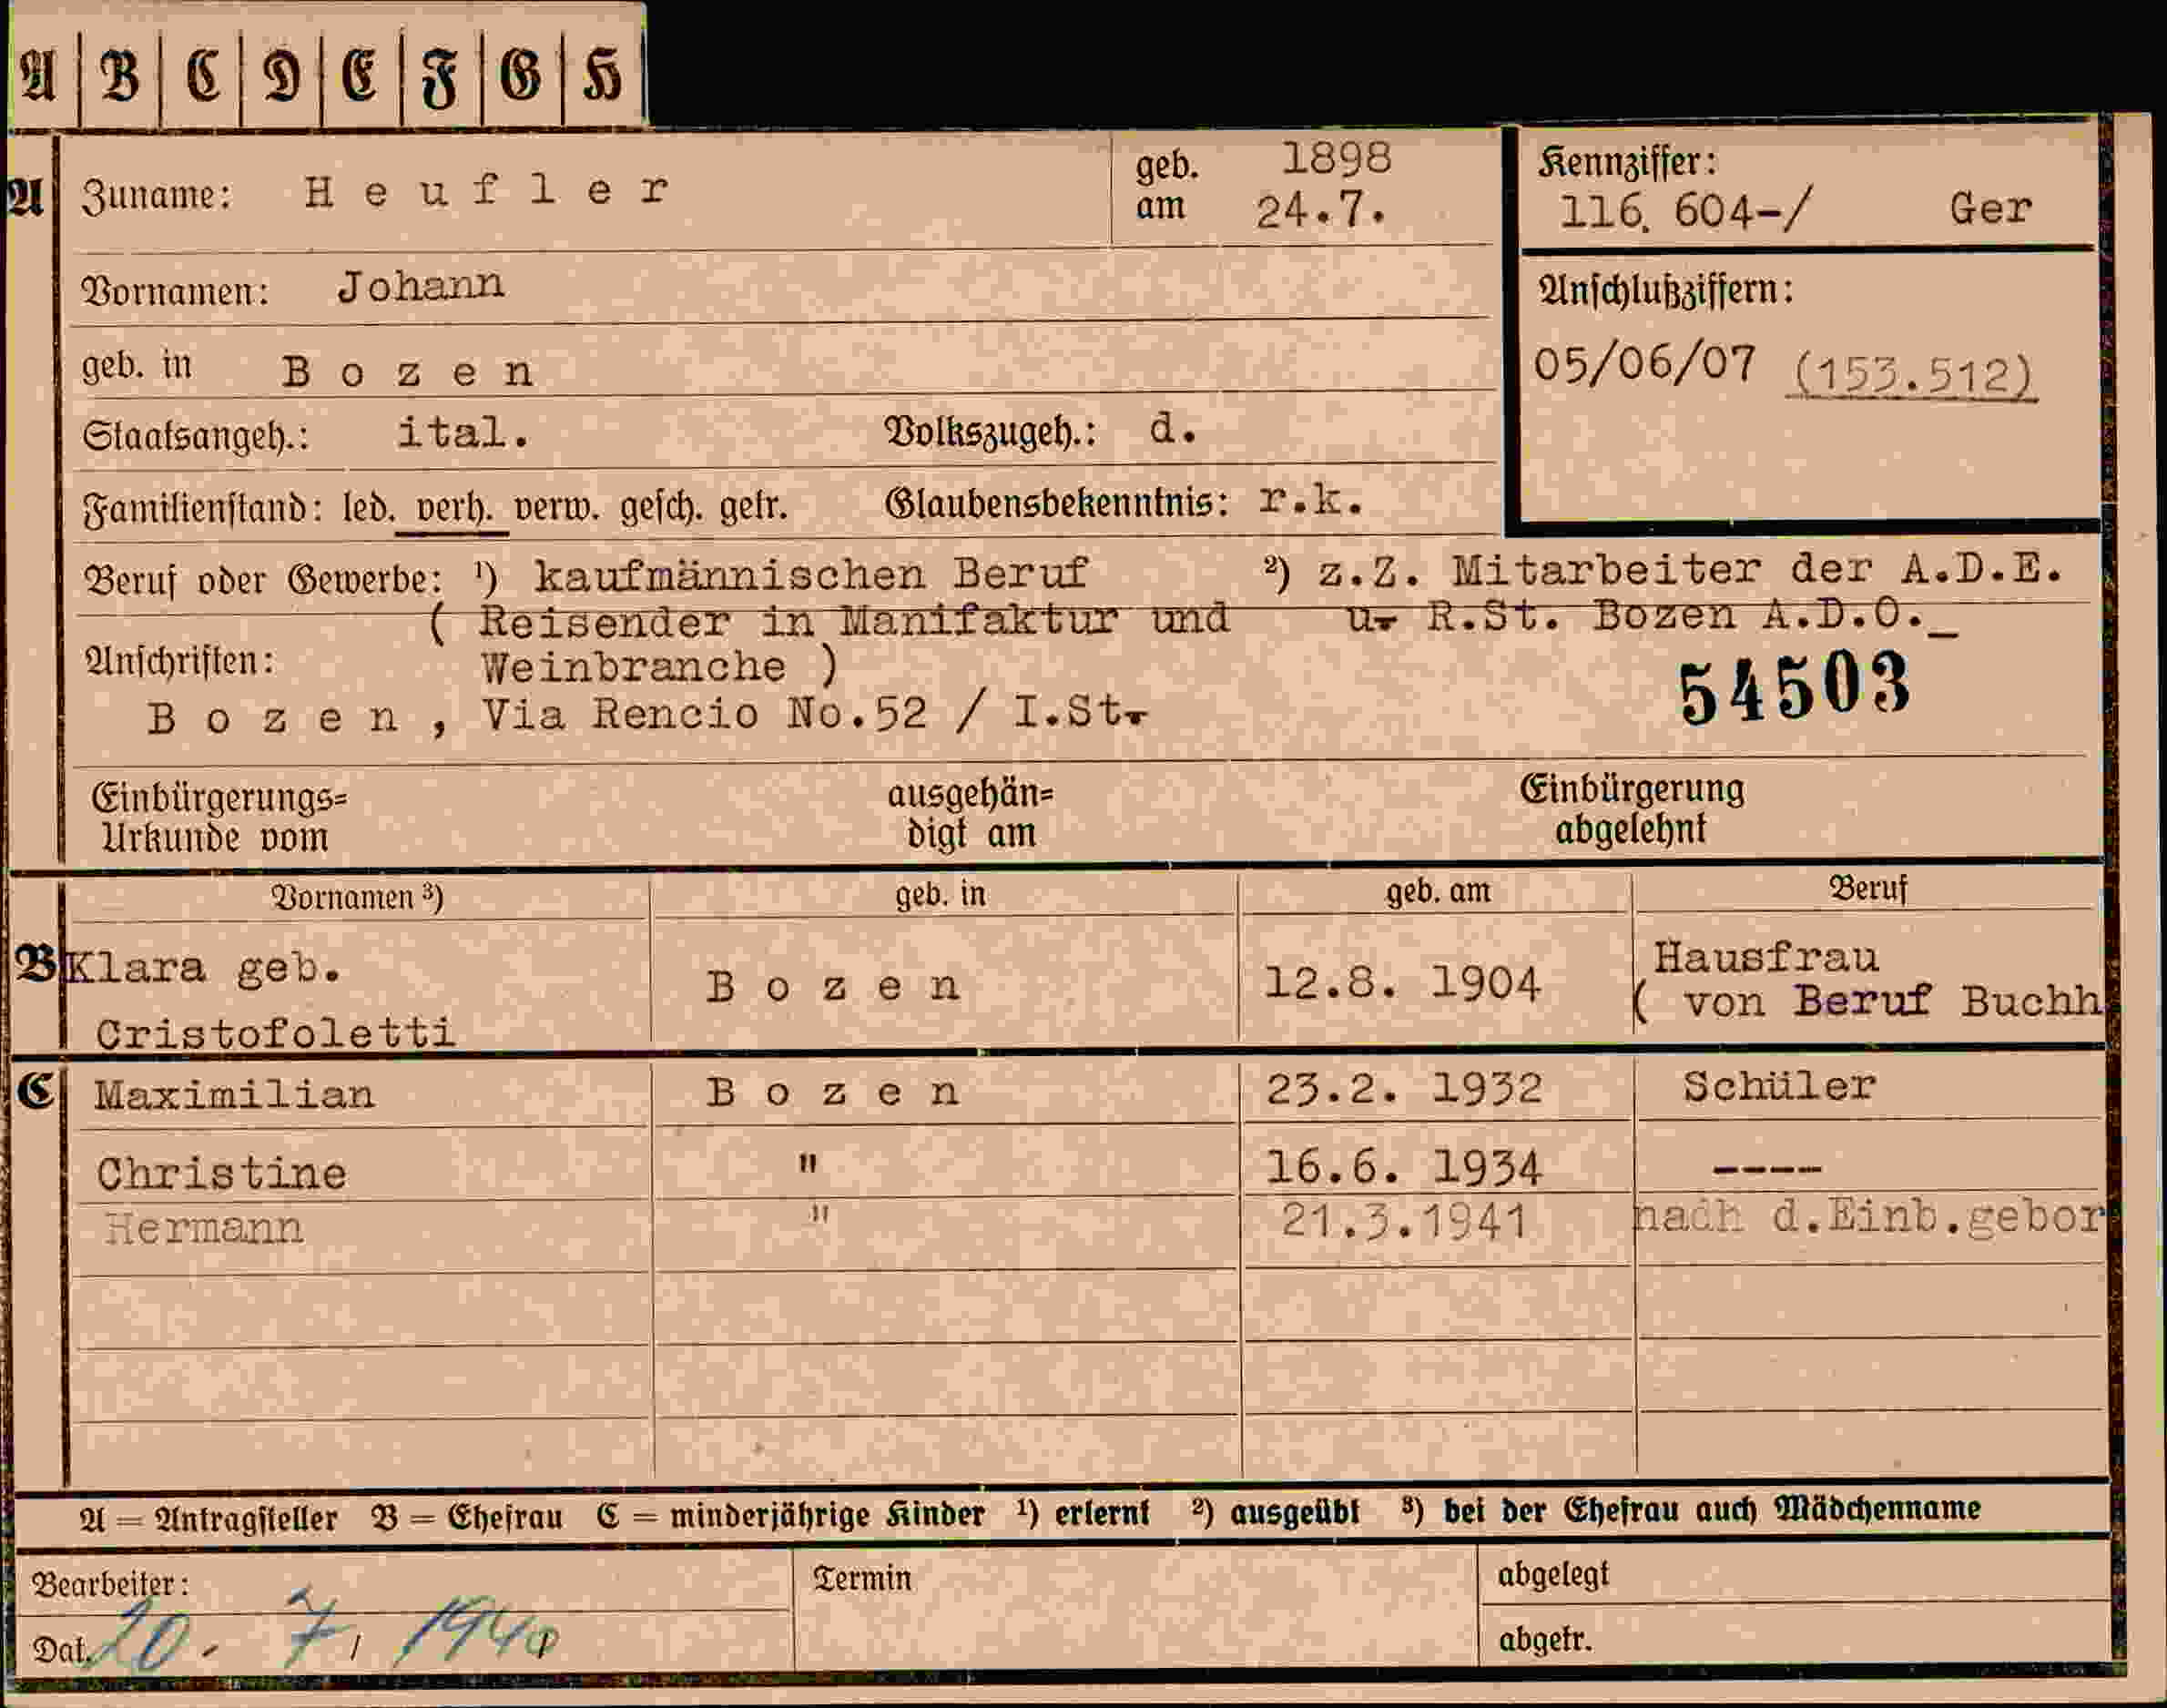 A B C D E F G H
A Zuname: Heufler geb. am 1898 24.7. Kennziffer: 116. 604-/ Ger
Vornamen: Johann Anschlußziffern:
geb. in Bozen 05/06/07 (153.512)
Staatsangeh.: ital. Volkszugeh.: d.
Familienstand: led. verh. verw. gesch. getr. Glaubensbekenntnis: r.k.
Beruf oder Gewerbe: ¹) kaufmännischen Beruf ²) z.Z. Mitarbeiter der A.D.E.
( Reisender in Manifaktur und u. R.St. Bozen A.D.O._
Anschriften: Weinbranche ) 54503
Bozen, Via Rencio No.52 / I.St.
Einbürgerungs= ausgehän= Einbürgerung
Urkunde vom digt am abgelehnt
Vornamen ³) geb. in geb. am Beruf
B Klara geb. Bozen 12.8. 1904 Hausfrau
Cristofoletti ( von Beruf Buchh
C Maximilian Bozen 23.2. 1932 Schüler
Christine " 16.6. 1934 ----
Hermann " 21.3.1941 nach d.Einb.gebor
A = Antragsteller B = Ehefrau C = minderjährige Kinder ¹) erlernt ²) ausgeübt ³) bei der Ehefrau auch Mädchenname
Bearbeiter: Termin abgelegt
Dat. 20. 7. 1940 abgetr.